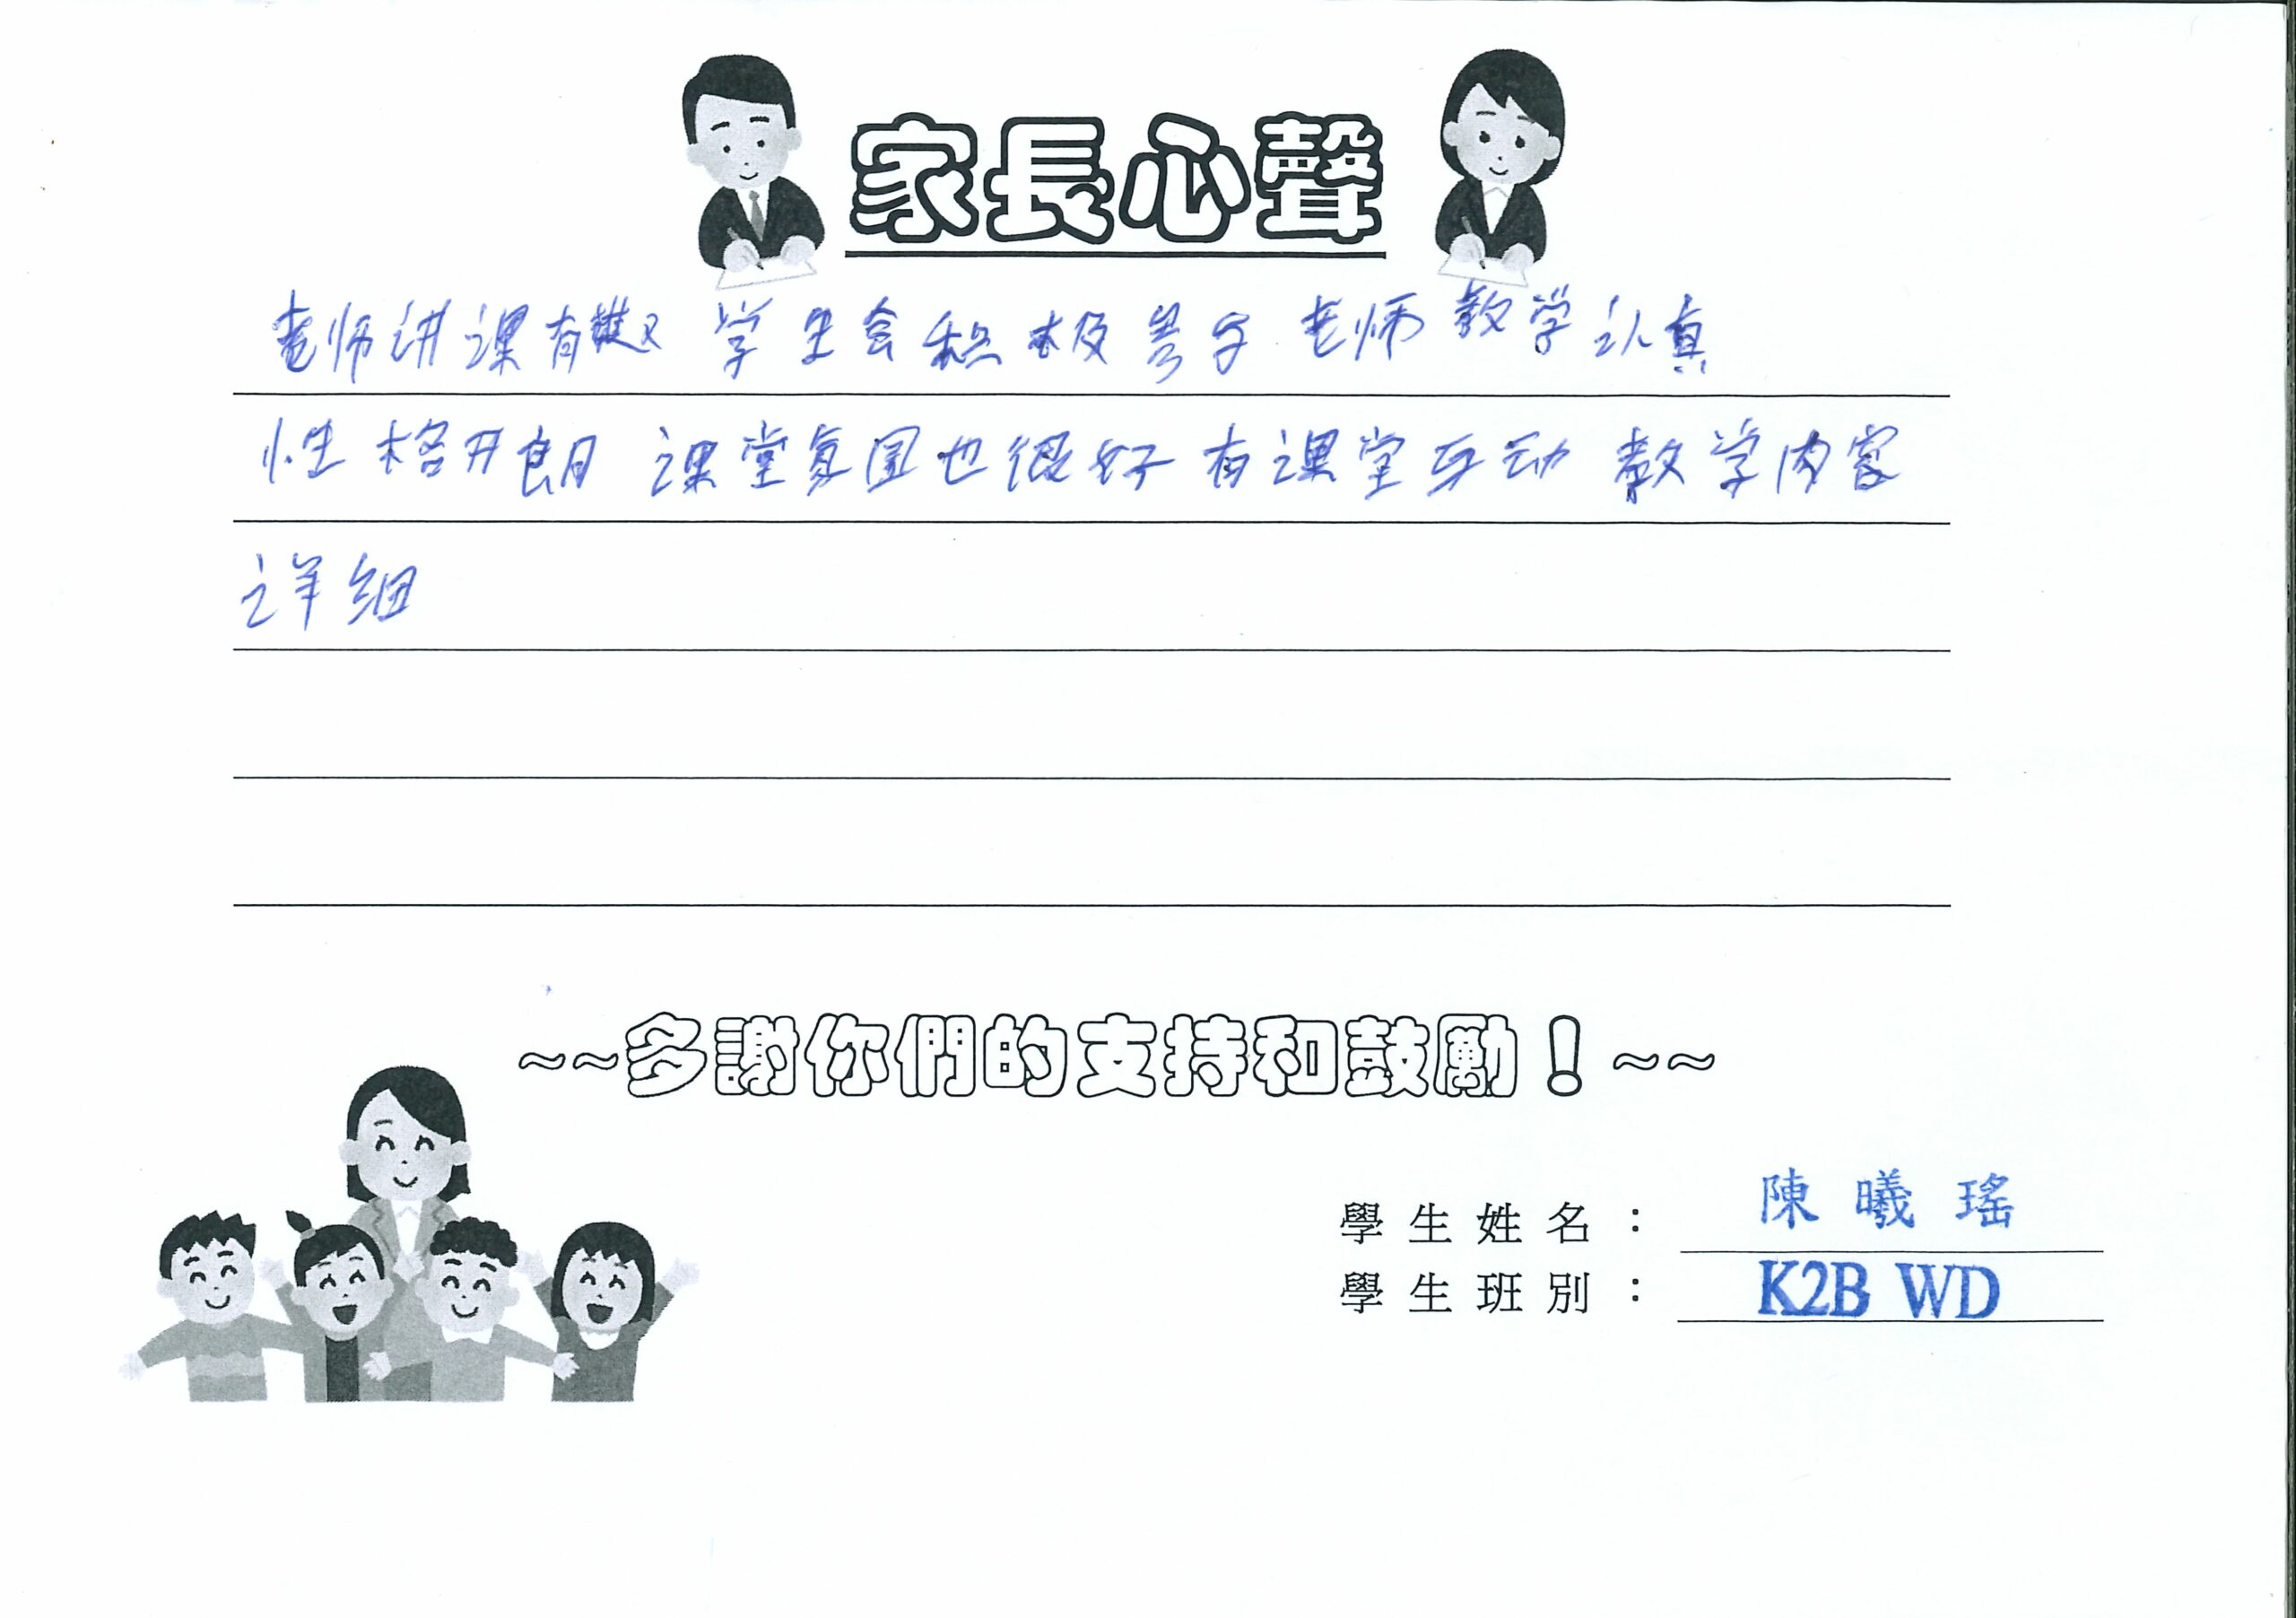 家長心聲
老师讲课有趣 学生会积极参与 老师教学认真
性格开朗 课堂氛围也很好 有课堂互动 教学内容
详细
~~多謝你們的支持和鼓勵！~~
學生姓名： 陳曦瑤
學生班別： K2B WD